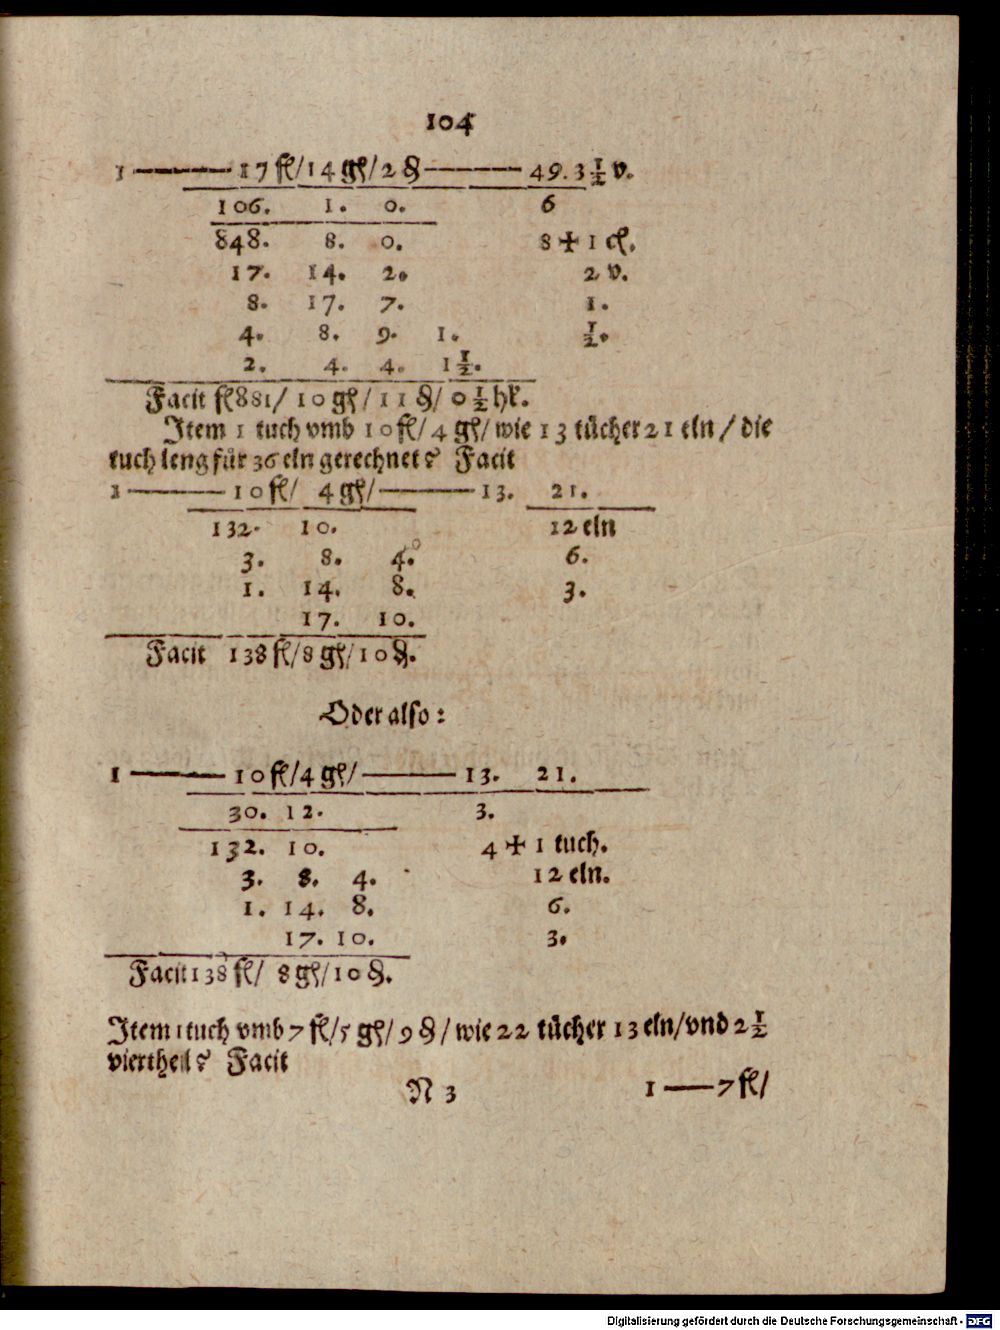 104
1 —— 17 fl/ 14 gℓ/ 2 ₰ —— 49. 3 1/2 v.
106. 1. 0. 6
848. 8. 0. 8 ✠ 1 cℓ.
17. 14. 2. 2 v.
8. 17. 7. 1.
4. 8. 9. 1. 1/2.
2. 4. 4. 1 1/2.
Facit fl 881/ 10 gℓ/ 11 ₰/ 0 1/2 hℓ.
Item 1 tuch vmb 10 fl/ 4 gℓ/ wie 13 tücher 21 eln/ die
tuch leng für 36 eln gerechnet? Facit
1 —— 10 fl/ 4 gℓ/ —— 13. 21.
132. 10. 12 eln
3. 8. 4. 6.
1. 14. 8. 3.
17. 10.
Facit 138 fl/ 8 gℓ/ 10 ₰.
Oder also:
1 —— 10 fl/ 4 gℓ/ —— 13. 21.
30. 12. 3.
132. 10. 4 ✠ 1 tuch.
3. 8. 4. 12 eln.
1. 14. 8. 6.
17. 10. 3.
Facit 138 fl/ 8 gℓ/ 10 ₰.
Item 1 tuch vmb 7 fl/ 5 gℓ/ 9 ₰/ wie 22 tücher 13 eln/ vnd 2 1/2
viertheil? Facit
N 3 1 —— 7 fl/
Digitalisierung gefördert durch die Deutsche Forschungsgemeinschaft - DFG